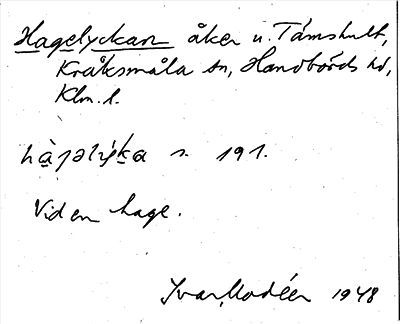 Hagelyckan åker u. Támshult,
Kråksmåla sn, Handbörds hd,
Klm. l.
s. 191.
Vid en hage.
Ivar Modéer 1948